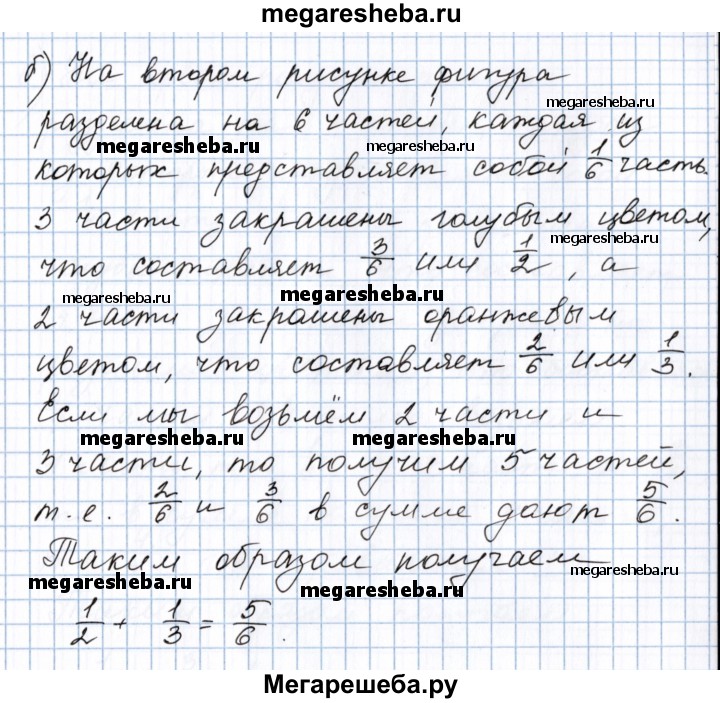 megaresheba.ru
б) На втором рисунке фигура
megaresheba.ru
разделена на 6 частей, каждая из
megaresheba.ru megaresheba.ru
которых представляет собой 1/6 часть.
3 части закрашены голубым цветом,
megaresheba.ru
что составляет 3/6 или 1/2, а
megaresheba.ru megaresheba.ru
2 части закрашены оранжевым
цветом, что составляет 2/6 или 1/3.
Если мы возьмём 2 части и
megaresheba.ru megaresheba.ru
3 части, то получим 5 частей,
т.е. 2/6 и 3/6 в сумме дают 5/6.
Таким образом получаем
megaresheba.ru megaresheba.ru megaresheba.ru
1/2 + 1/3 = 5/6.
Мегарешеба.ру